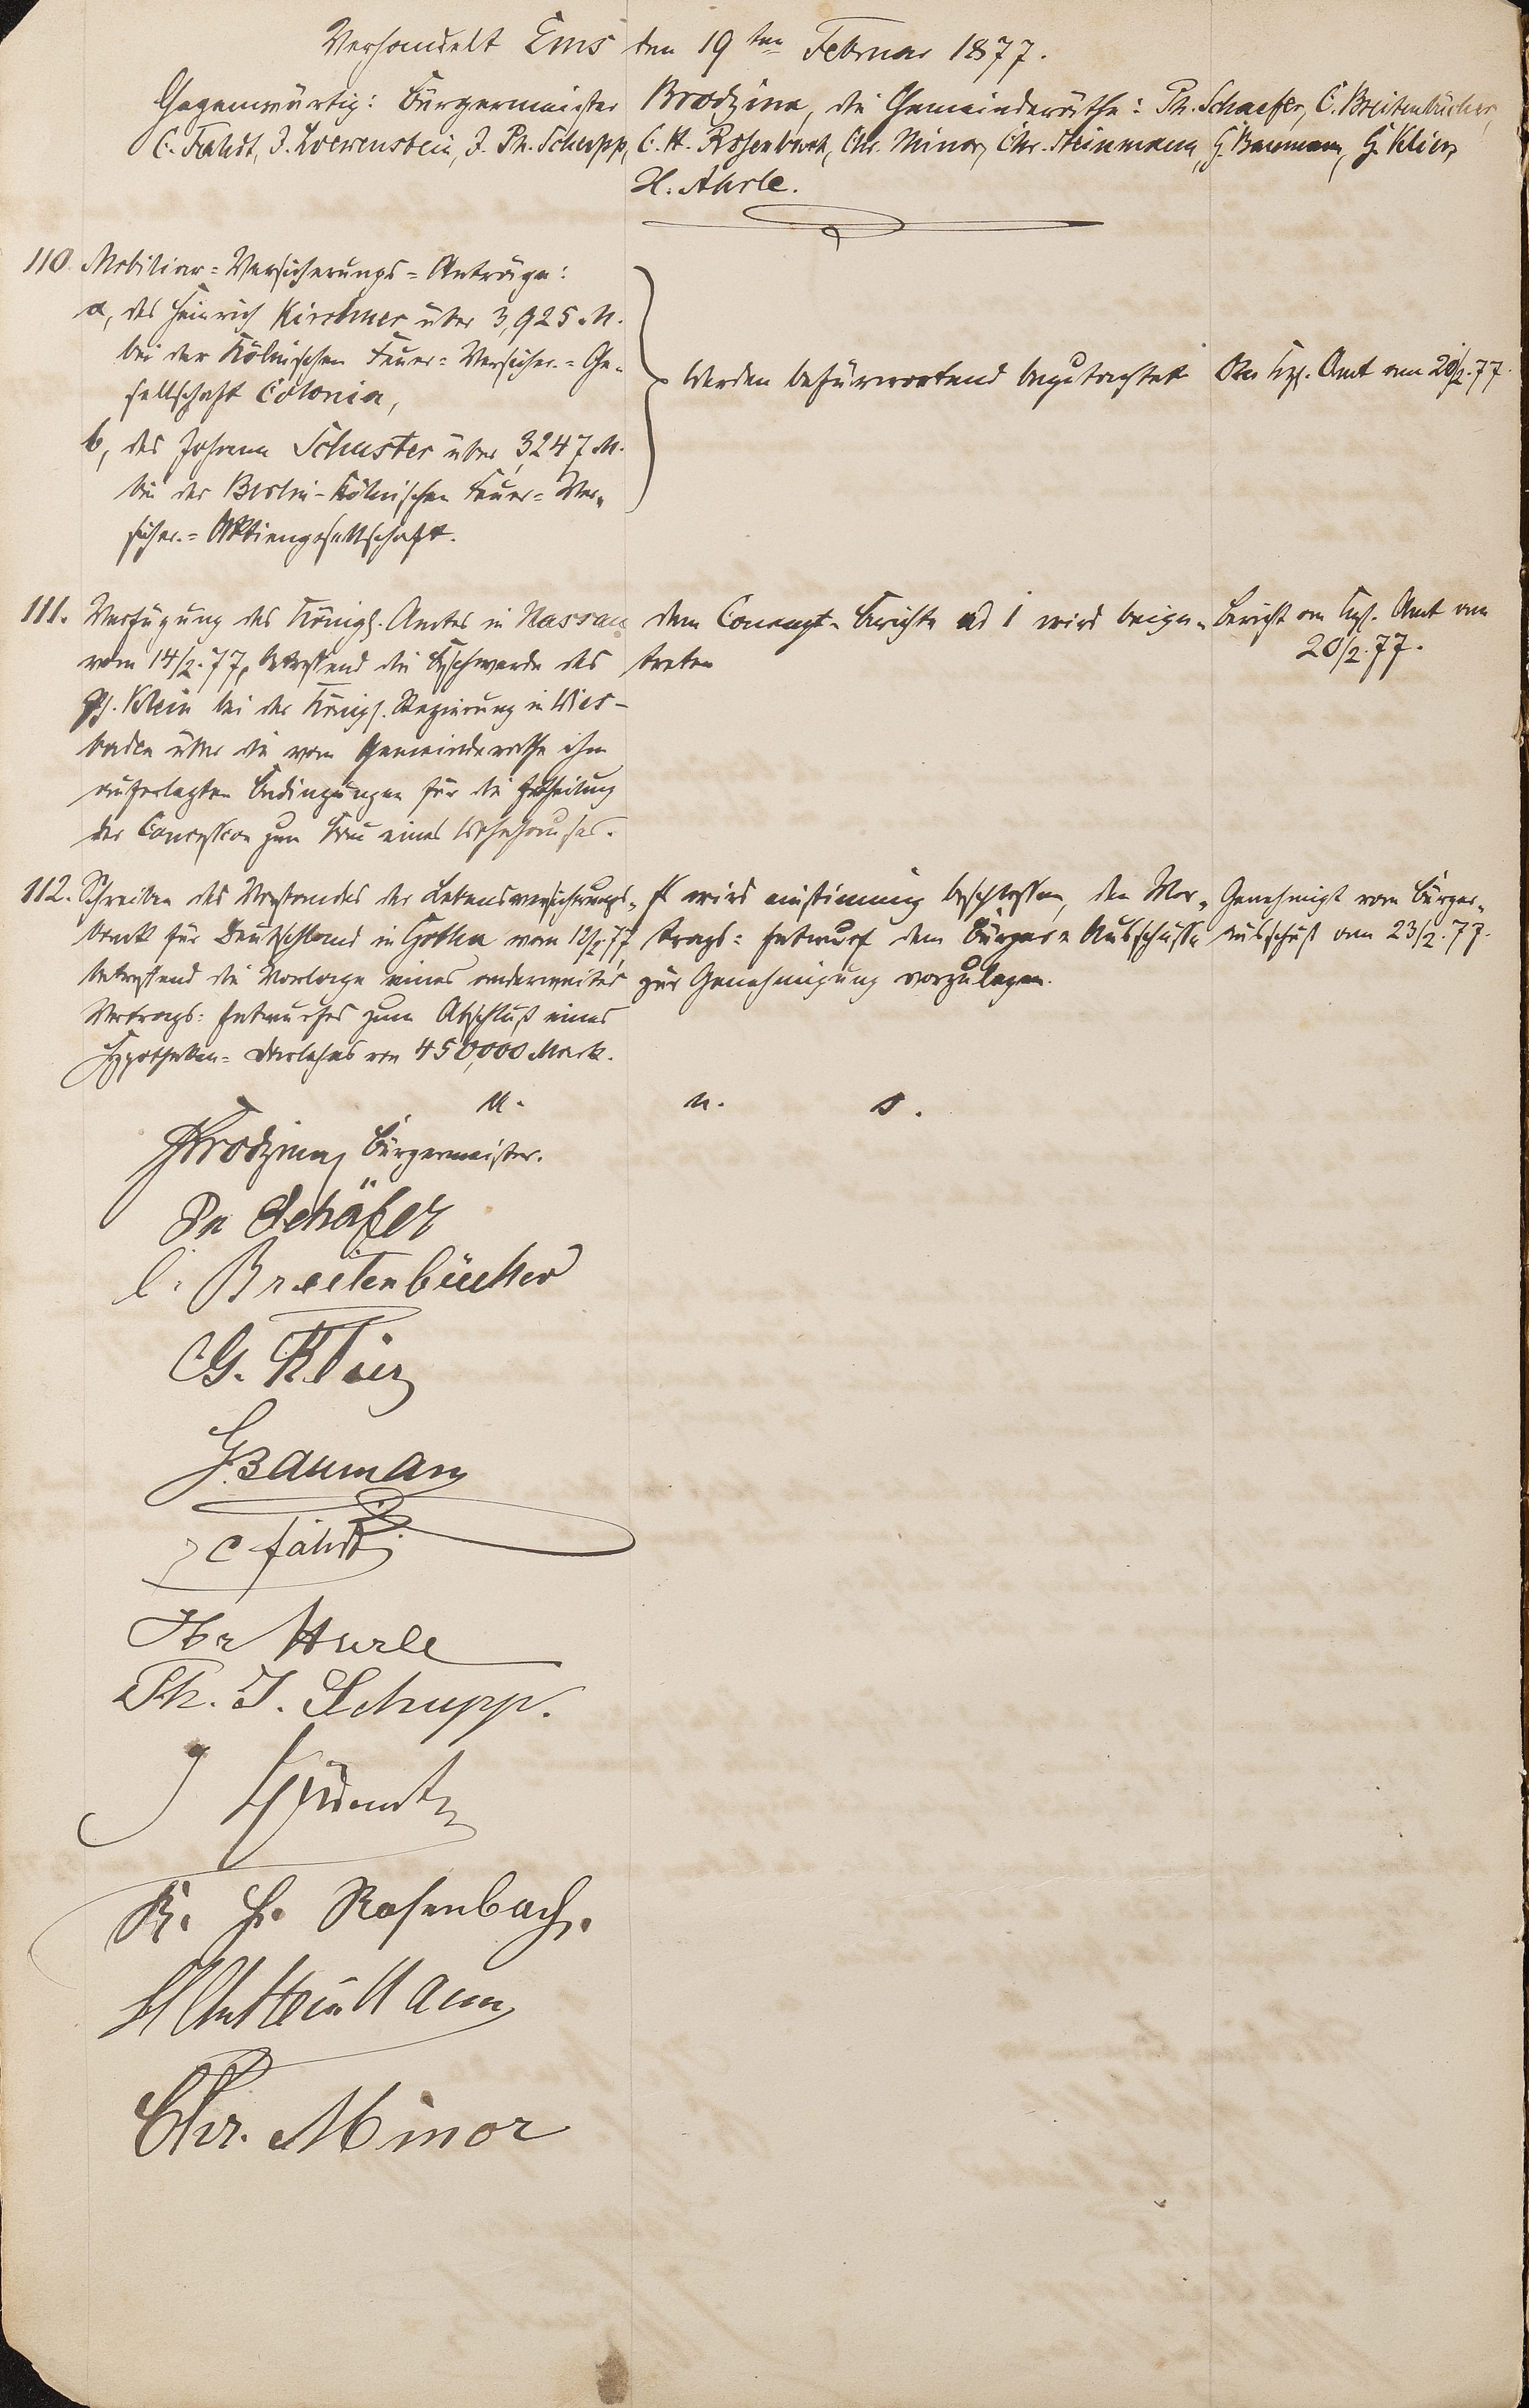 Verhandelt Ems den 19ten Februar 1877.
Gegenwärtig: Bürgermeister Brodzina, die Gemeinderäthe: Ph. Schaefer, C. Breitenbücher,
C. Fahdt, J. Loewenstein, J. Ph. Schupp, C. H. Rosenbach, Chr. Minor, Chr. Heinmann, G. Baumann, G. Klier,
H. Ahrle.
110. Mobiliar-Versicherungs-Anträge:
a, des Heinrich Kirchner über 3,925 M.
bei der Kölnischen Feuer-Versicher.-Ge-
sellschaft Colonia,
b, des Johann Schuster über 3247 M.
bei der Berlin-Kölnischen Feuer-Ver-
sicher.-Aktiengesellschaft.
Werden befürwortend begutachtet
An Kgl. Amt am 20/2.77.
111. Verfügung des Königl. Amtes in Nassau
vom 14/2.77, betreffend die Beschwerde des
Ph. Klein bei der Königl. Regierung in Wies-
baden über die vom Gemeinderathe ihm
auferlegten Bedingungen für die Ertheilung
der Concession zum Bau eines Wohnhauses.
dem Concept-Berichte ad 1 wird beige-
treten
Bericht an Kgl. Amt am
20/2.77.
112. Schreiben des Vorstandes der Lebensversicherungs-
bank für Deutschland in Gotha vom 12/2.77,
betreffend die Vorlage eines anderweiter
Vertrags-Entwurfes zum Abschluß eines
Hypotheken-Darlehns von 450,000 Mark.
Es wird einstimmig beschlossen, den Ver-
trags-Entwurf dem Bürger-Ausschusse
zur Genehmigung vorzulegen.
Genehmigt vom Bürger-
Ausschuß am 23/2.77.
u. n. s.
Brodzina, Bürgermeister.
Ph Schäfer
C. Breitenbücher
G. Klier
G. Baumann
C Fahdt
Hr Ahrle
Ph. J. Schupp.
J
K. H. Rosenbach.
Chr. Minor